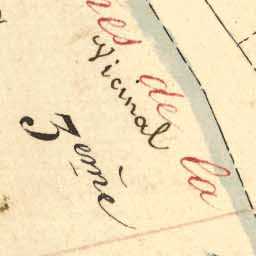 de la
Vicinal
3eme